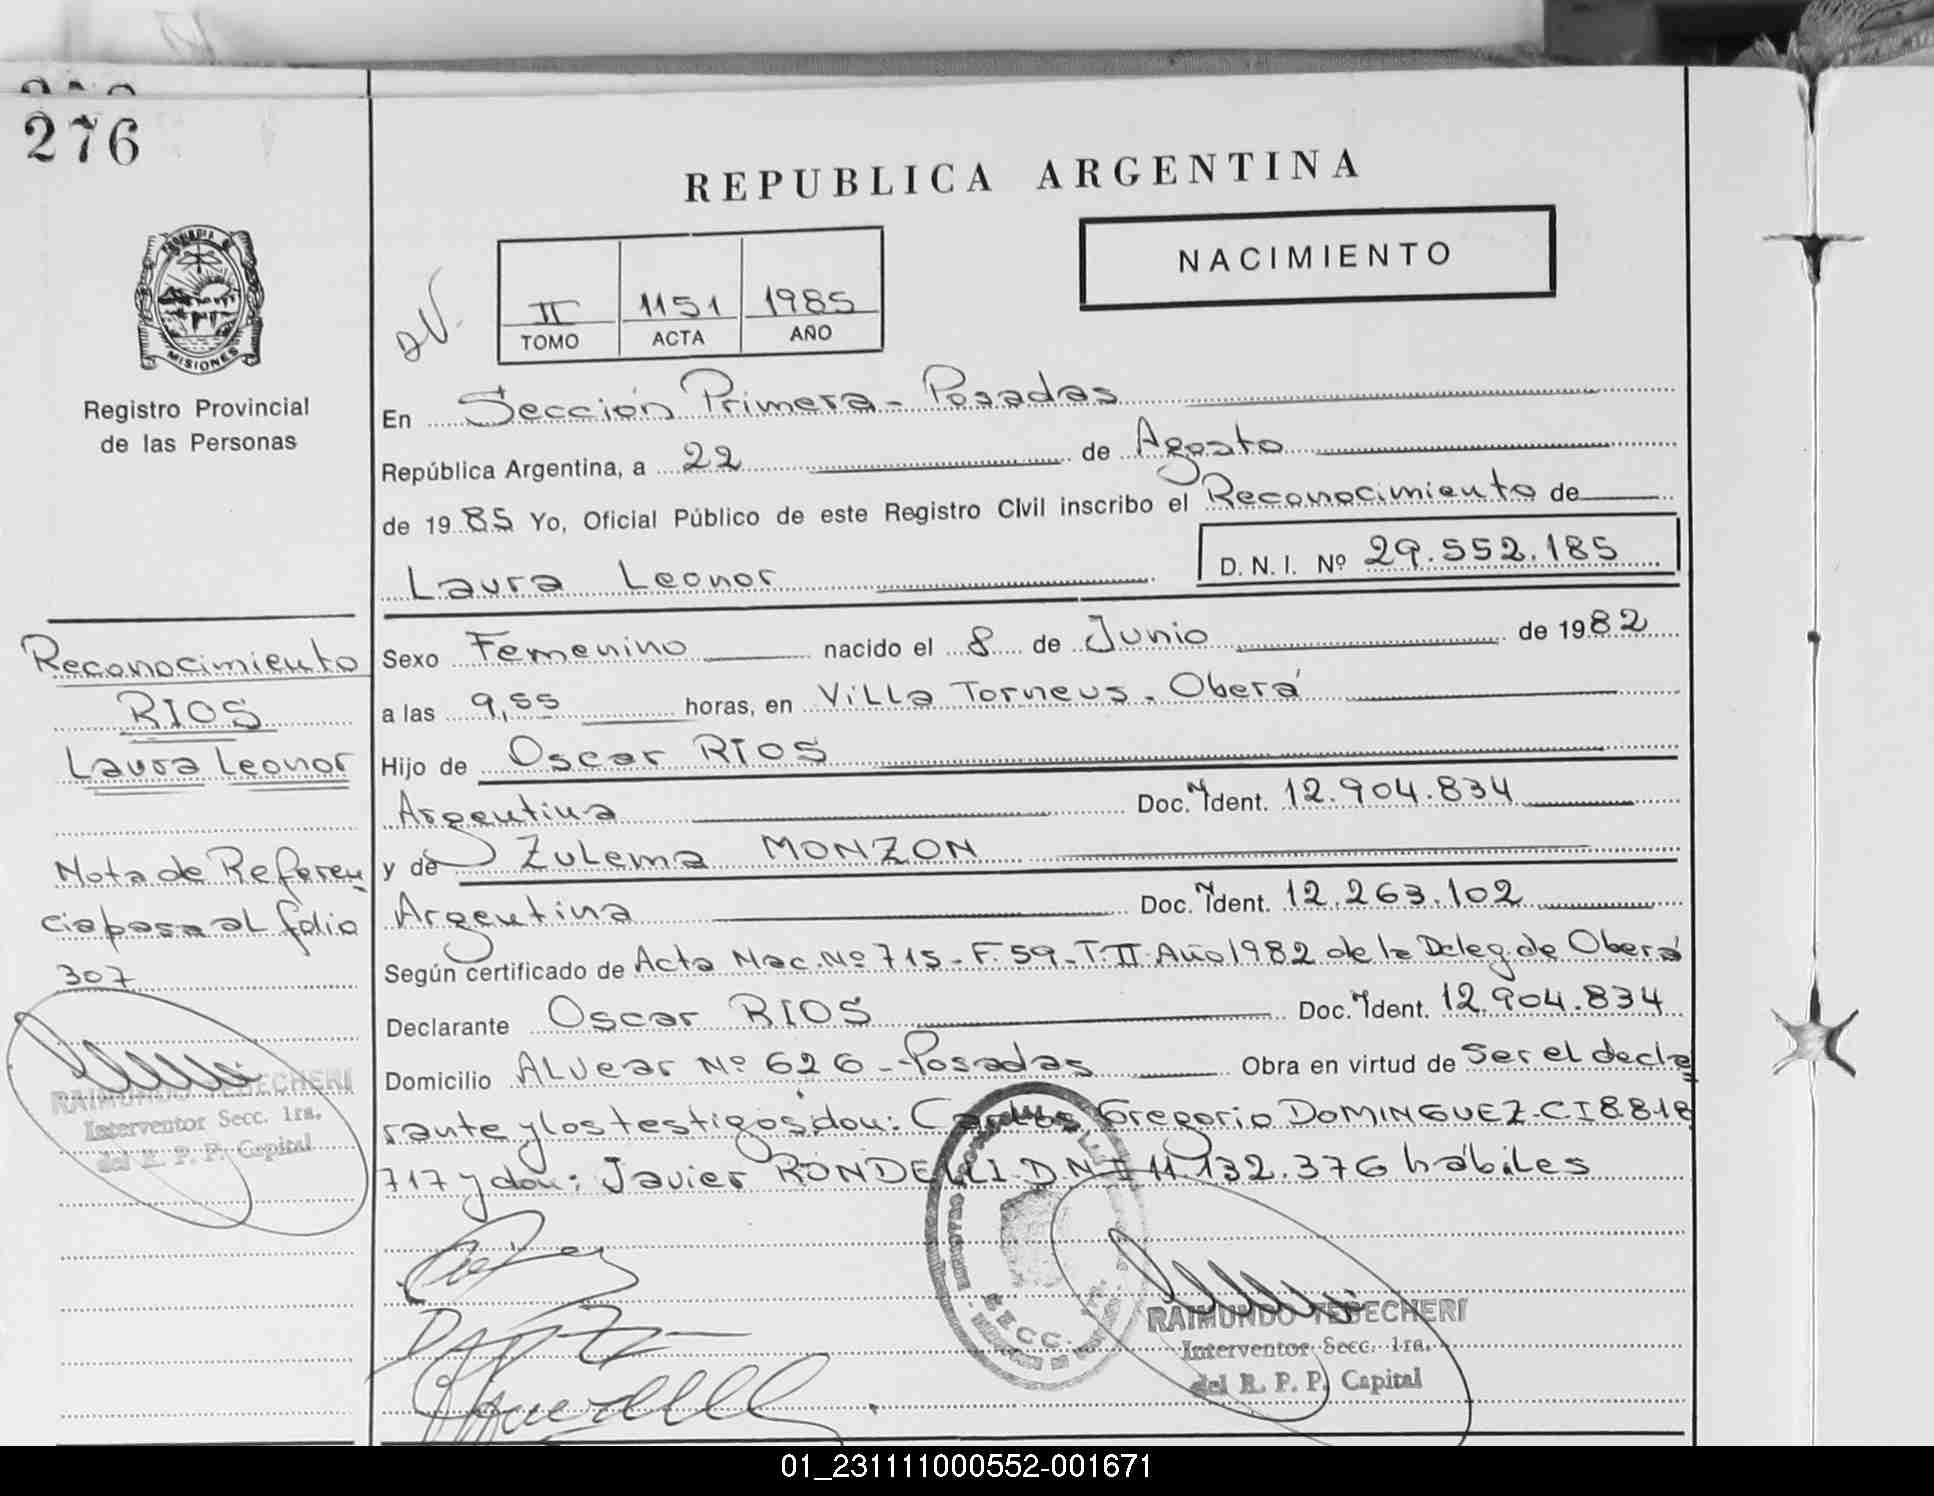 276
REPUBLICA ARGENTINA
NACIMIENTO
II 1151 1985
TOMO ACTA AÑO
PROVINCIA DE
MISIONES
Registro Provincial
de las Personas
En Sección Primera - Posadas
República Argentina, a 22 de Agosto
de 1985 Yo, Oficial Público de este Registro Civil inscribo el Reconocimiento de
Laura Leonor D. N. I. Nº 29.552.185
Sexo Femenino nacido el 8 de Junio de 1982
a las 9,55 horas, en Villa Torneus - Oberá
Hijo de Oscar RIOS
Argentina Doc. N Ident. 12.904.834
y de Zulema MONZON
Argentina Doc. N Ident. 12.263.102
Según certificado de Acta Nac. Nº 715 - F. 59 - T. II Año 1982 de la Deleg. de Oberá
Declarante Oscar RIOS Doc. N Ident. 12.904.834
Domicilio Alvear Nº 626 - Posadas Obra en virtud de ser el decla
rante y los testigos: don: Gregorio DOMINGUEZ - C I 8.818
717 y don: Javier RONDELLI - D N I 11.132.376 hábiles
Reconocimiento
RIOS
Laura Leonor
Nota de Referen
cia pasa al folio
307
RAIMUNDO TEBECHERI
Interventor Secc. 1ra.
del R. P. P. Capital
SECC.
RAIMUNDO TEBECHERI
Interventor Secc. 1ra.
del R. P. P. Capital
01_231111000552-001671